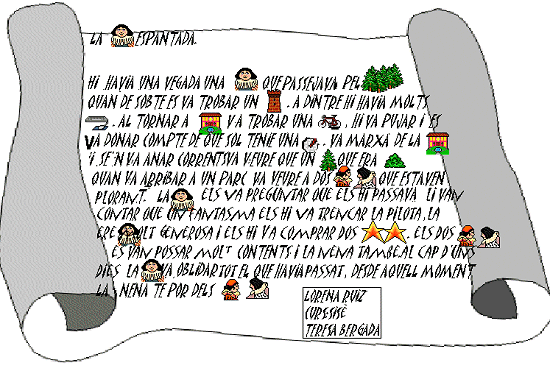 LA ESPANTADA.
HI HAVIA UNA VEGADA UNA QUE PASSEJAVA PEL
QUAN DE SOBTE ES VA TROBAR UN . A DINTRE HI HAVIA MOLTS
. AL TORNAR A VA TROBAR UNA , HI VA PUJAR I ES
VA DONAR COMPTE DE QUE SOL TENIE UNA . VA MARXÀ DE LA
I SE'N VA ANAR CORRENTS VA VEURE QUE UN QUE ERA
QUAN VA ARRIBAR A UN PARC VA VEURE A DOS QUE ESTAVEN
PLORANT. LA ELS VA PREGUNTAR QUE ELS HI PASSAVA LI VAN
CONTAR QUE UN FANTASMA ELS HI VA TRENCAR LA PILOTA, LA
ERE MOLT GENEROSA I ELS HI VA COMPRAR DOS . ELS DOS
ES VAN POSSAR MOLT CONTENTS I LA NENA TAMBE. AL CAP D'UNS
DIES LA VA OBLIDAR TOT EL QUE HAVIA PASSAT, DESDE AQUELL MOMENT
LA NENA TE POR DELS
LORENA RUIZ
CURS: SISÈ
TERESA BERGADA